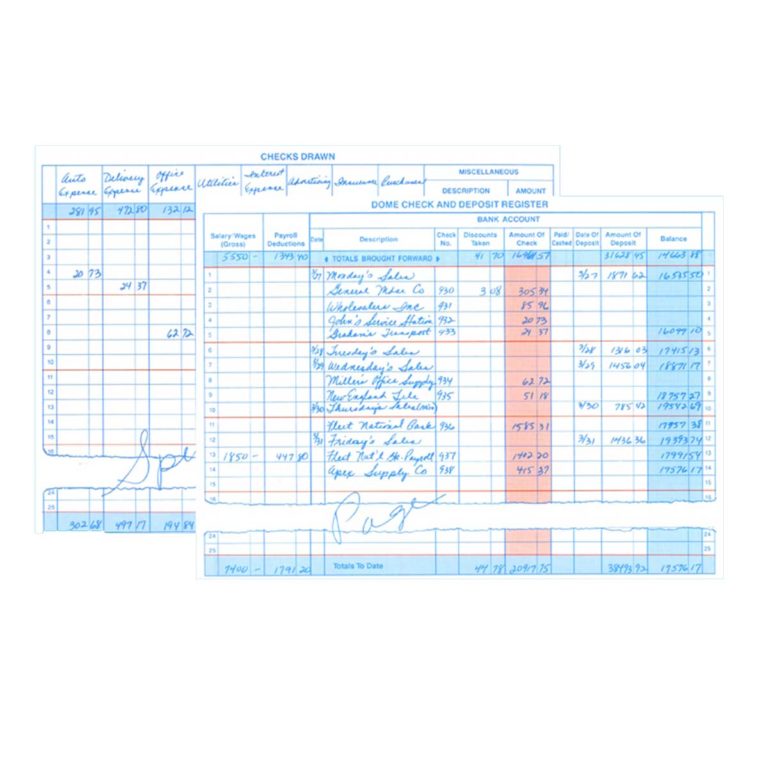 CHECKS DRAWN
Auto Expense Delivery Expense Office Expense Utilities Interest Expense Advertising Insurance Purchases MISCELLANEOUS
DESCRIPTION AMOUNT
281 95 472 80 132 12
1
2
3
4 20 73
5 24 37
6
7
8 62 72
9
10
11
12
13
14
15
16
Spe
24
25
302 68 497 17 194 84
DOME CHECK AND DEPOSIT REGISTER
BANK ACCOUNT
Salary/Wages (Gross) Payroll Deductions Date Description Check No. Discounts Taken Amount Of Check Paid/Cashed Date Of Deposit Amount Of Deposit Balance
5550 - 1343 40 TOTALS BROUGHT FORWARD 41 70 31628 45 14663 88
1 3/27 Monday's Sales 3/27 1871 62 16535 50 1
2 General Motor Co 930 3 08 305 94 2
3 Wholesalers Inc 931 85 96 3
4 John's Service Station 932 20 73 4
5 Graham's Transport 933 24 37 16099 10 5
6 3/28 Tuesday's Sales 3/28 1316 03 17415 13 6
7 3/29 Wednesday's Sales 3/29 1456 04 18871 17 7
8 Miller's Office Supply 934 62 72 8
9 New England Tele 935 51 18 18757 27 9
10 3/30 Thursday's Sales 3/30 785 42 19542 69 10
11 Fleet National Bank 936 1585 31 17957 38 11
12 3/31 Friday's Sales 3/31 1436 36 19393 74 12
13 1850 - 447 80 Fleet Nat'l Bk-Payroll 937 1402 20 17991 54 13
14 Apex Supply Co 938 415 37 17576 17 14
15 15
16 16
Page
24 24
25 25
7400 - 1791 20 Totals To Date 44 78 20917 75 38493 92 17576 17